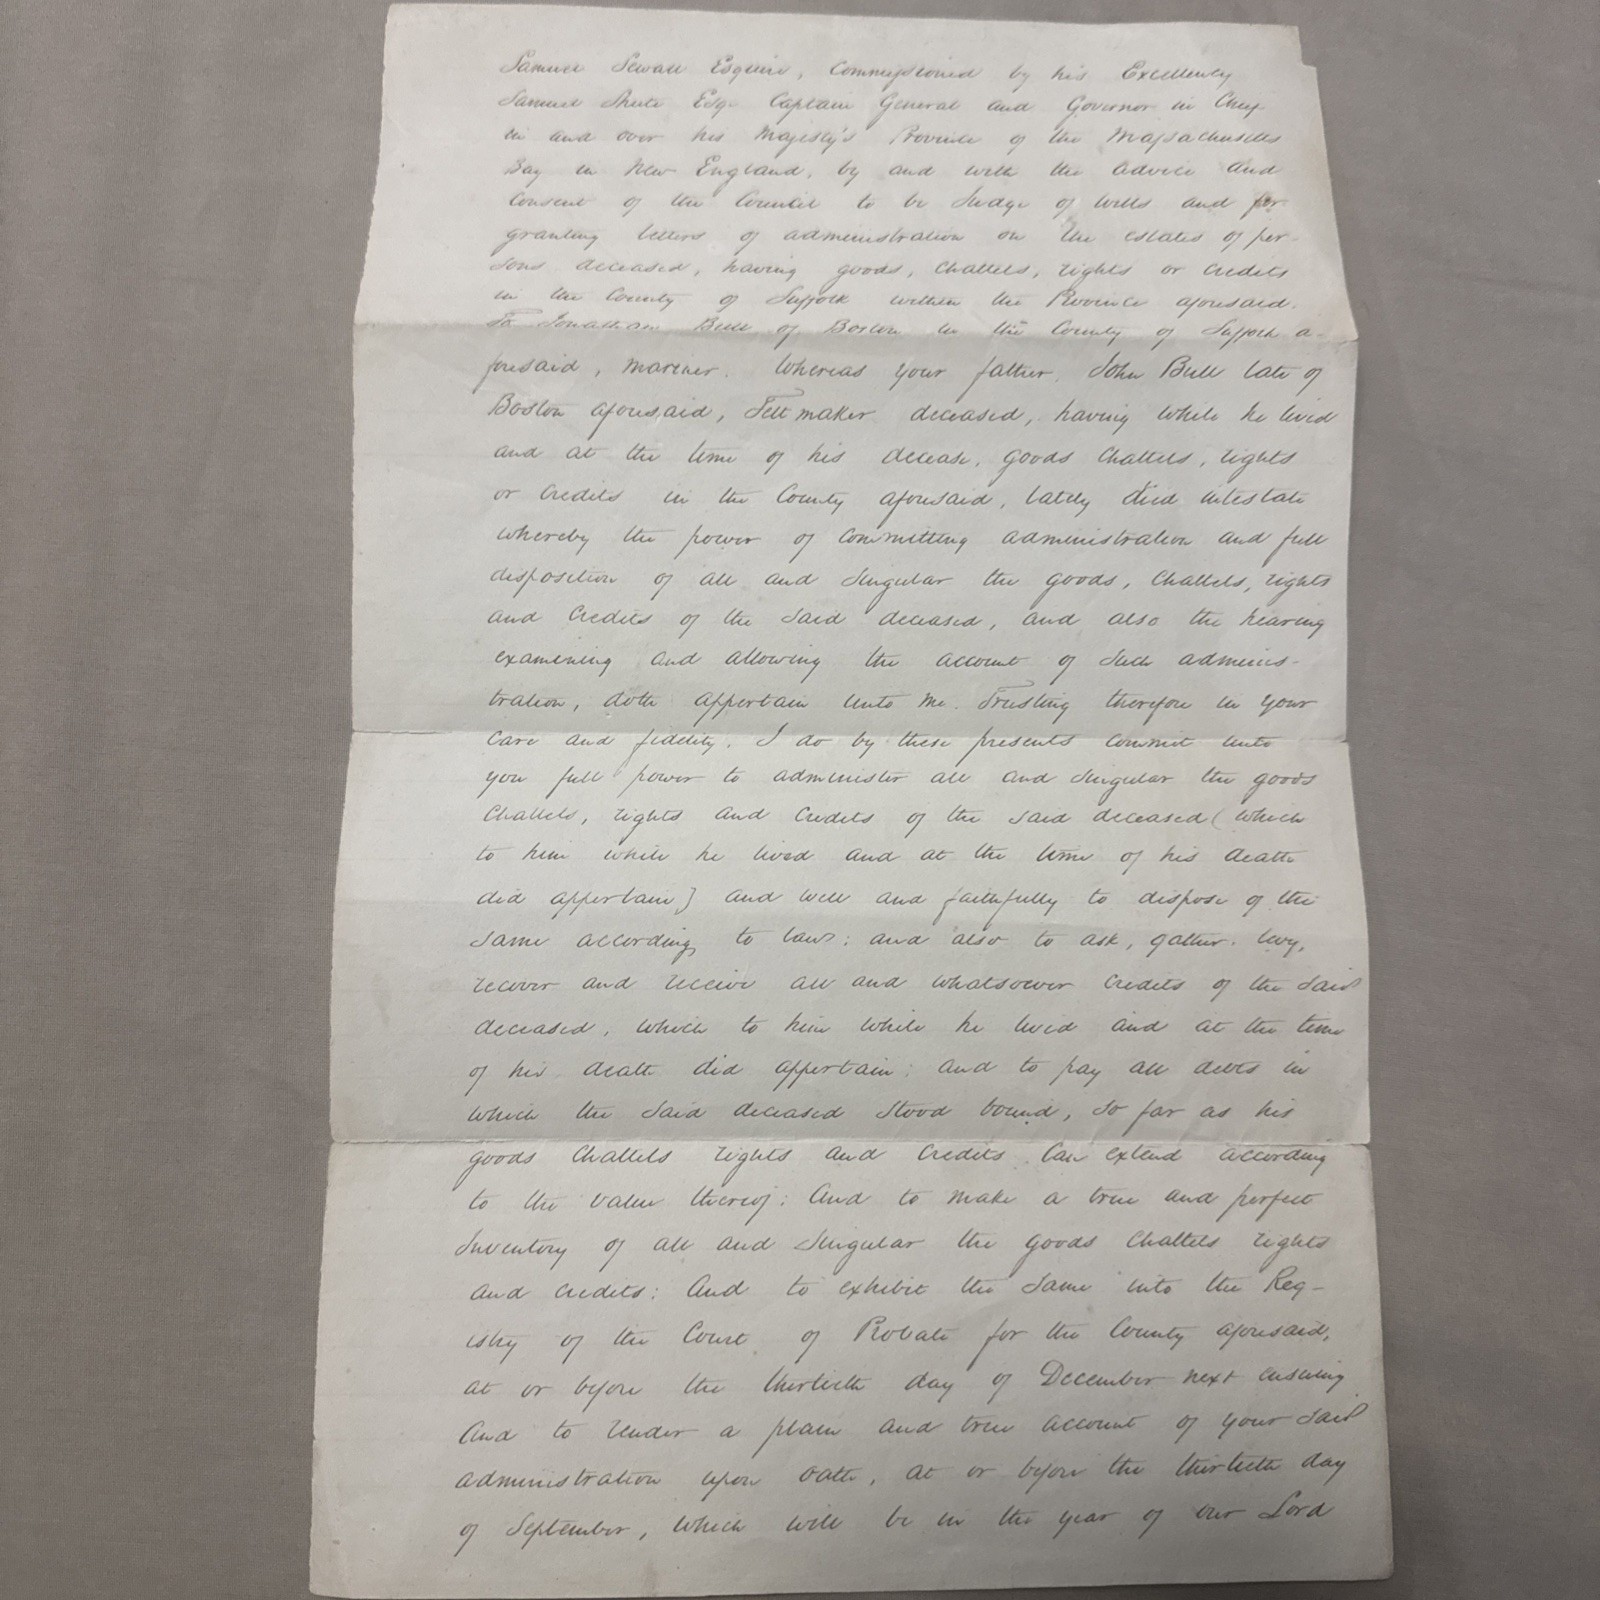 Samuel Sewall Esquire, Commissioned by his Excellency
Samuel Shute Esqr Captain General and Governor in Chief
in and over his Majesty's Province of the Massachusetts
Bay in New England, by and with the advice and
Consent of the Council to be Judge of Wills and for
granting letters of administration on the estates of per-
sons deceased, having goods, chattels, rights or credits
in the County of Suffolk within the Province aforesaid.
To Jonathan Bull of Boston in the County of Suffolk a-
foresaid, mariner. Whereas your father, John Bull late of
Boston aforesaid, Felt maker deceased, having while he lived
and at the time of his decease, goods chattels, rights
or credits in the County aforesaid, lately died intestate
whereby the power of committing administration and full
disposition of all and singular the goods, chattels, rights
and credits of the said deceased, and also the hearing
examining and allowing the account of such adminis-
tration, doth appertain unto me. Trusting therefore in your
care and fidelity, I do by these presents commit unto
you full power to administer all and singular the goods
chattels, rights and credits of the said deceased (which
to him while he lived and at the time of his death
did appertain) and well and faithfully to dispose of the
same according to law: and also to ask, gather, levy,
recover and receive all and whatsoever credits of the said
deceased, which to him while he lived and at the time
of his death did appertain: and to pay all debts in
which the said deceased stood bound, so far as his
goods chattels rights and credits can extend according
to the value thereof: And to make a true and perfect
Inventory of all and singular the goods chattels rights
and credits: And to exhibit the same into the Reg-
istry of the Court of Probate for the County aforesaid,
at or before the thirtieth day of December next ensuing
And to render a plain and true account of your said
administration upon oath, at or before the thirtieth day
of September, which will be in the year of our Lord